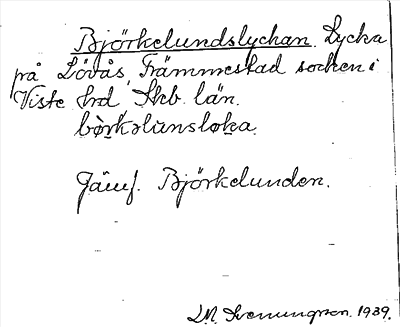 Björkelundslyckan. Lycka
på Lövås, Främmestad socken i
Viste hrd, Skb. län.
bö̀rkəlùnsləka.
Jämf. Björkelunden.
1939.